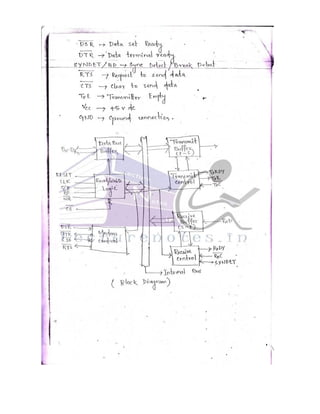 DSR → Data set Ready
DTR → Data terminal ready
SYNDET/BD → Sync Detect/Break Detect
RTS → Request to send data
CTS → Clear to send data
TxE → Transmitter Empty
Vcc → +5v dc
GND → Ground connection.
Data Bus
Buffer
Transmit
Buffer
RESET
CLK
Read/Write
Logic
Transmit
control
TxRDY
TxE
TxC
Receive
Buffer
RxD
DSR
DTR
CTS
RTS
Modem
control
Receive
control
RxRDY
RxC
SYNDET
→ Internal Bus
( Block Diagram )